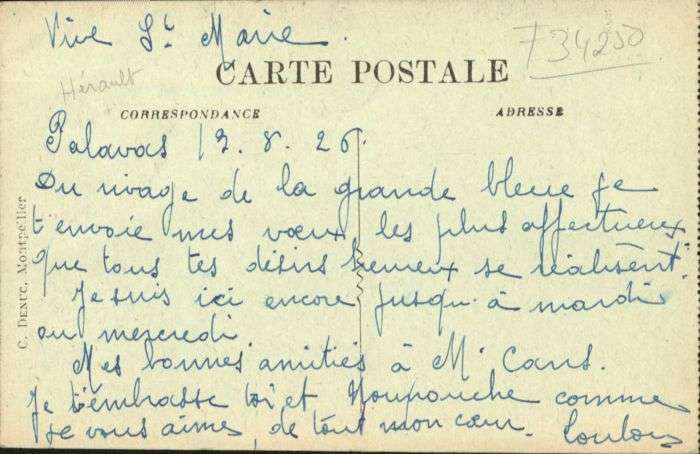 Vive Ste Marie.
F34250
Hérault
CARTE POSTALE
CORRESPONDANCE
ADRESSE
Palavas 13.8.26.
Du rivage de la grande bleue je
t'envoie mes vœux les plus affectueux
que tous tes désirs heureux se réalisent.
Je suis ici encore jusqu'à mardi
ou mercredi.
Mes bonnes amitiés à Mr Cans.
Je t'embrasse toi et Noupouche comme
je vous aimes, de tout mon cœur. Loulou
C. DENUC, Montpellier